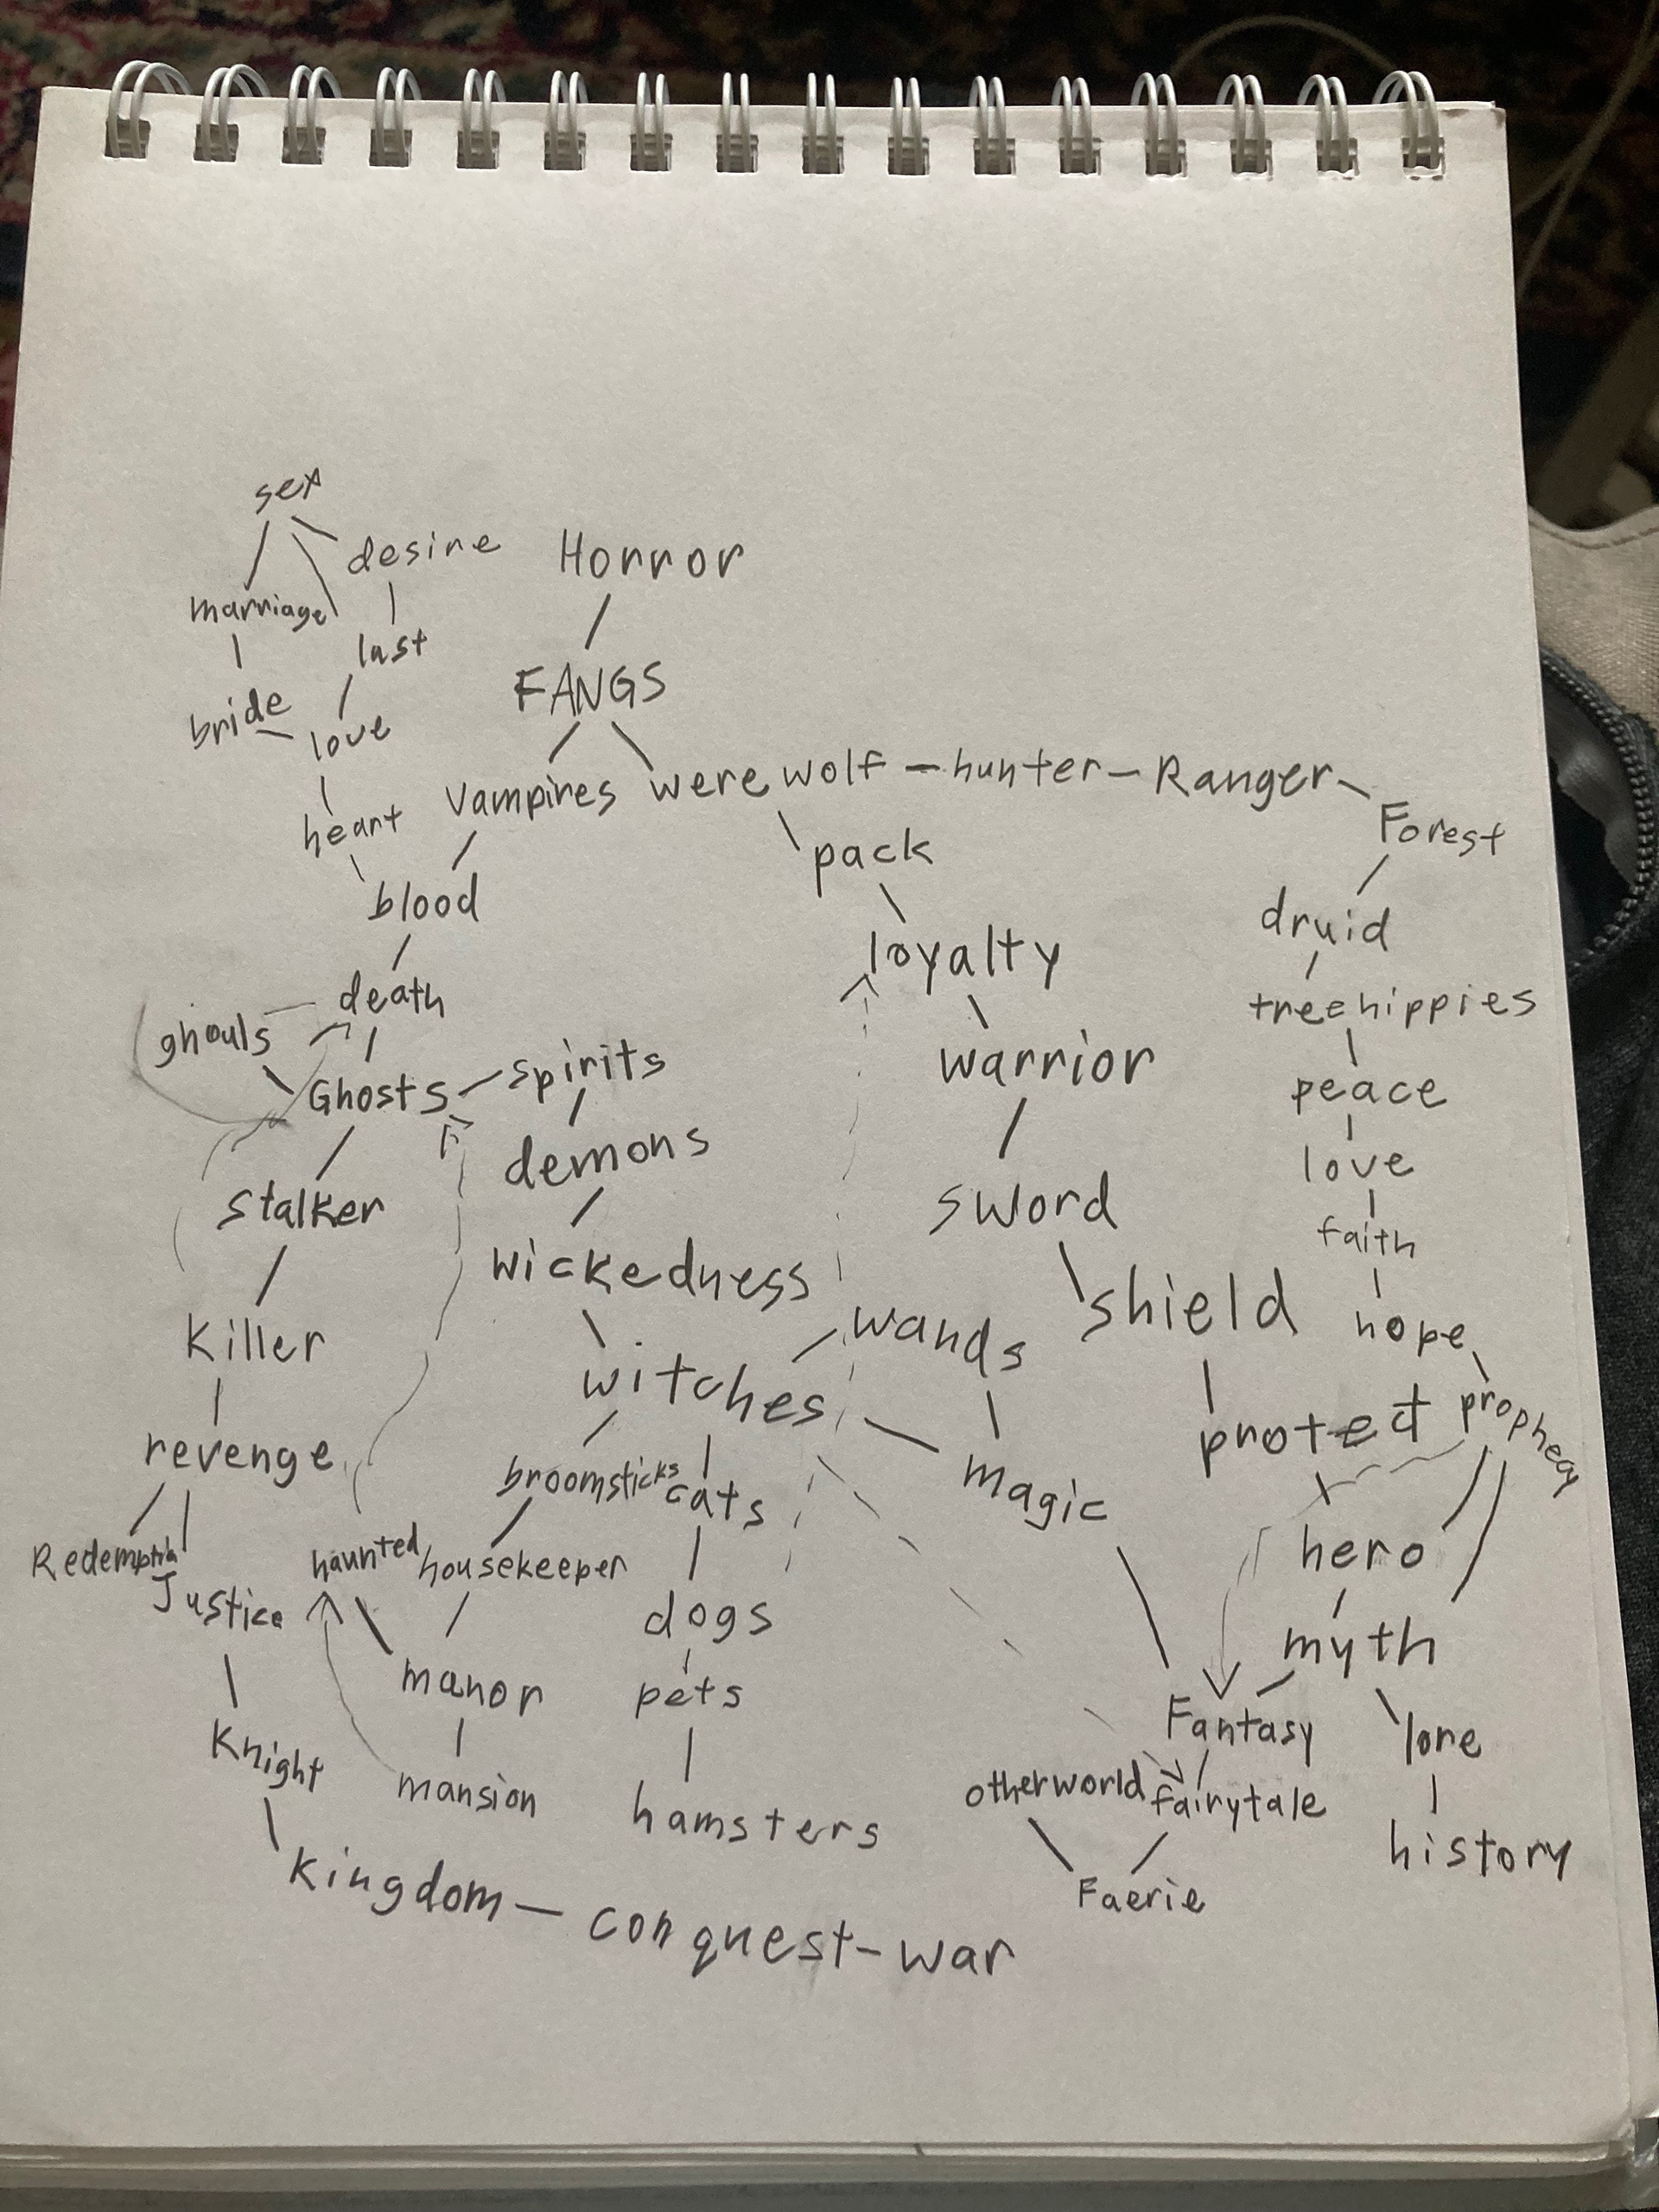 sex
desire
Horror
marriage
last
FANGS
bride
love
vampires
werewolf
hunter
Ranger
Forest
heart
pack
blood
druid
loyalty
death
treehippies
ghouls
Ghosts
spirits
warrior
peace
demons
love
stalker
sword
faith
wickedness
shield
hope
Killer
wands
witches
protect
prophecy
revenge
broomsticks
cats
magic
Redemption
haunted
housekeeper
hero
Justice
dogs
myth
manor
pets
Fantasy
lore
Knight
mansion
hamsters
otherworld
fairytale
history
Kingdom
Faerie
conquest
war